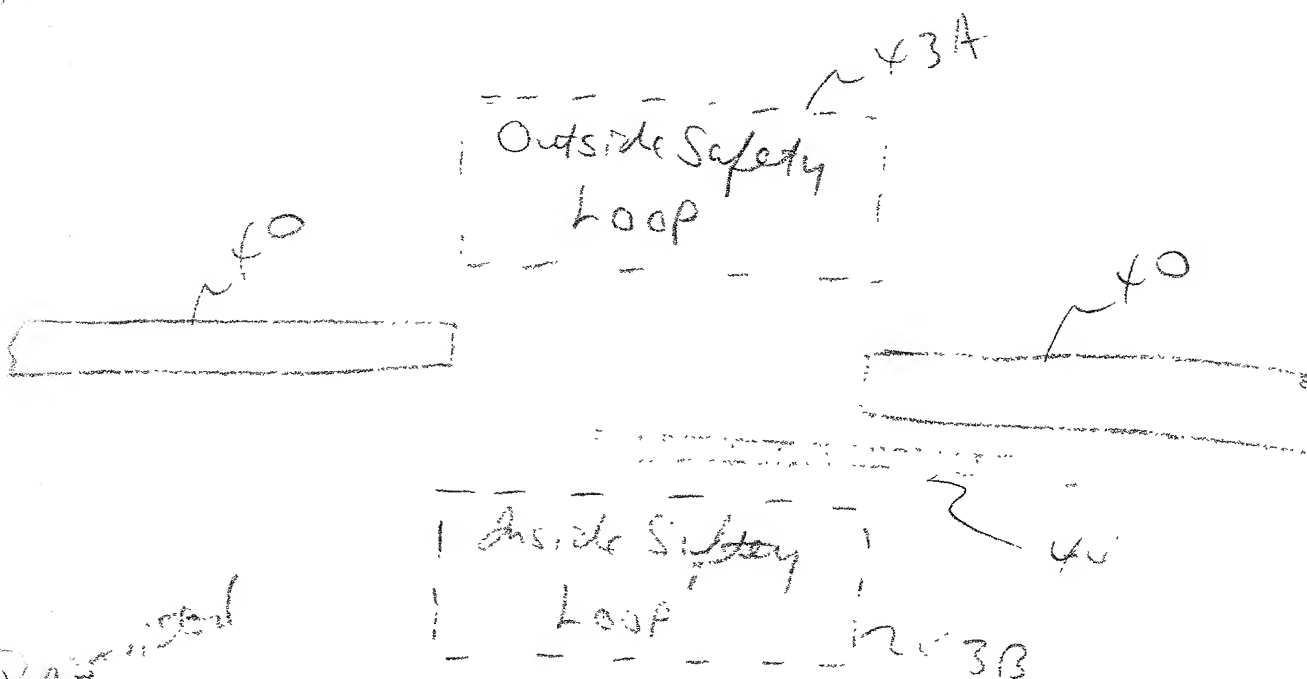 43A
Outside Safety
Loop
40
40
Inside Safety
Loop
43B